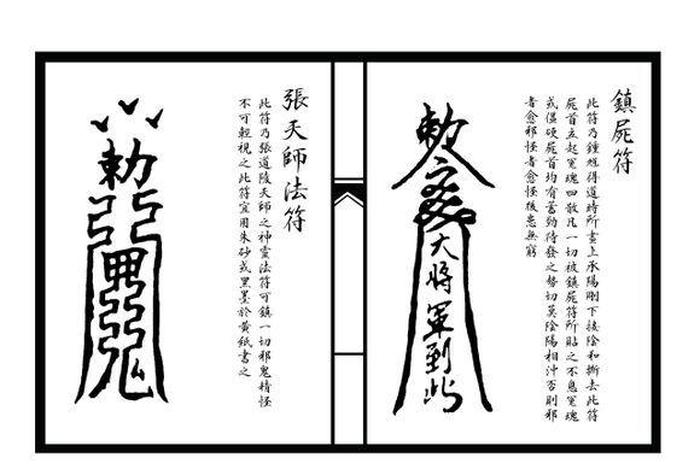 鎮屍符
此符乃鍾馗得道時所畫上承陽剛下接陰和撕去此符
屍首立起冤魂四散凡一切被鎮屍符所貼之不息冤魂
或僵硬屍首均有蓄勁待發之勢切莫陰陽相沖否則邪
者愈邪怪者愈怪後患無窮
勅
大將軍到此
張天師法符
此符乃張道陵天師之神靈法符可鎮一切邪鬼精怪
不可輕視之此符宜用朱砂或黑墨於黃紙書之
勅